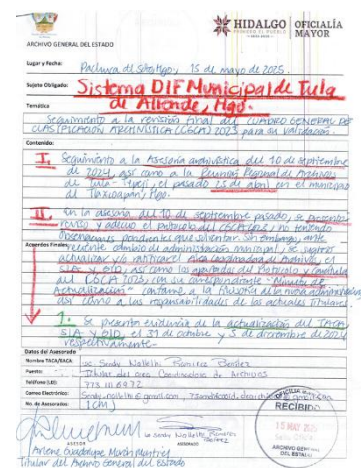 HIDALGO
PRIMERO EL PUEBLO
OFICIALÍA
MAYOR
ARCHIVO GENERAL DEL ESTADO
Lugar y Fecha: Pachuca de Soto, Hgo., 15 de mayo de 2025.
Sujeto Obligado: Sistema DIF Municipal de Tula
de Allende, Hgo.
Temática
Seguimiento a la revisión final del CUADRO GENERAL DE
CLASIFICACIÓN ARCHIVÍSTICA (CGCA) 2023 para su validación.
Contenido:
I. Seguimiento a la Asesoría archivística del 10 de septiembre
de 2024, así como a la Reunión Regional de Archivos
de Tula-Tepeji, el pasado 25 de abril en el municipio
de Tlaxcoapan, Hgo.
II. En la asesoría del 10 de septiembre pasado, se presentó,
revisó y adecuó el protocolo del CGCA, no teniendo
observaciones pendientes que solventar. Sin embargo, ante
Acuerdos Finales:
reciente cambio de administración municipal, se sugiere
actualizar y/o ratificar el Área Coordinadora de Archivos, el
SIA y GID, así como los apartados del Protocolo y Carátula
del CGCA 2023, con su correspondiente "Minuta de
Actualización" conforme a la filosofía de la nueva administración
así como a las responsabilidades de los actuales titulares
1.- Se presentó evidencia de la actualización del TACA,
SIA y GID, el 31 de octubre y 5 de diciembre de 2024
respectivamente.-
Datos del Asesorado
Nombre TACA/RACA:
Puesto: Titular del Área Coordinadora de Archivos
Teléfono (10):
Correo Electrónico:
No. de Asesorados: 1 (M)
OFICIALÍA MAYOR
RECIBIDO
15 MAY 2025
ARCHIVO GENERAL
DEL ESTADO
ASESOR
ASESORADO
Titular del Archivo General del Estado